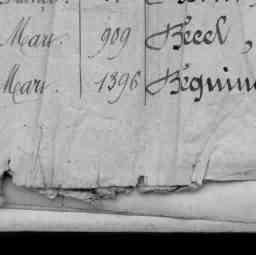 Mars. 909 Becel,
Mars. 1396 Béguin